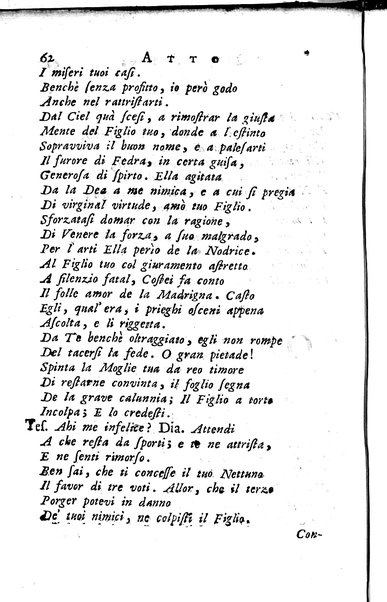 62 ATTO
I miseri tuoi casi.
Benchè senza profitto, io però godo
Anche nel rattristarti.
Dal Ciel quà scesi, a rimostrar la giusta
Mente del Figlio tuo, donde a l'estinto
Sopravviva il buon nome, e a palesarti
Il furore di Fedra, in certa guisa,
Generosa di spirto. Ella agitata
Da la Dea a me nimica, e a cui si pregia
Di virginal virtude, amò tuo Figlio.
Sforzatasi domar con la ragione,
Di Venere la forza, a suo malgrado,
Per l'arti Ella perìo de la Nodrice.
Al Figlio tuo col giuramento astretto
A silenzio fatal, Costei fa conto
Il folle amor de la Madrigna. Casto
Egli, qual'era, i prieghi osceni appena
Ascolta, e li riggetta.
Da Te benchè oltraggiato, egli non rompe
Del tacersi la fede. O gran pietade!
Spinta la Moglie tua da reo timore
Di restarne convinta, il foglio segna
De la grave calunnia; Il Figlio a torto
Incolpa; E lo credesti.
Tes. Ahi me infelice? Dia. Attendi
A che resta da sporti; e te ne attrista,
E ne senti rimorso.
Ben sai, che ti concesse il tuo Nettuno
Il favor di tre voti. Allor, che il terzo
Porger potevi in danno
De' tuoi nimici, ne colpisti il Figlio.
Con-